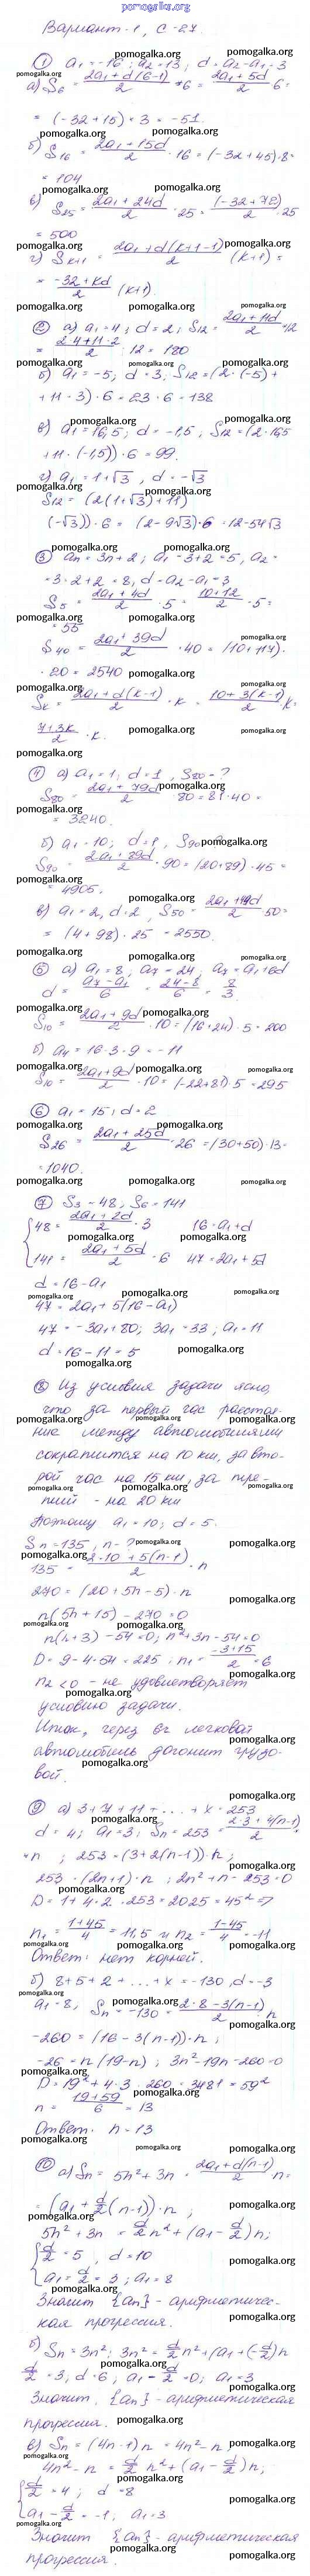 pomogalka.org
Вариант-1, С-27.
① a₁ = -16; a₂ = 13; d = a₂ - a₁ = 3
а) S₆ = (2a₁ + d(6-1))/2 · 6 = (2a₁ + 5d)/2 · 6 =
= (-32 + 15) · 3 = -51.
б) S₁₆ = (2a₁ + 15d)/2 · 16 = (-32 + 45) · 8 =
= 104
в) S₂₅ = (2a₁ + 24d)/2 · 25 = (-32 + 72)/2 · 25
= 500
г) Sₖ₊₁ = (2a₁ + d(k+1-1))/2 (k+1) =
= (-32 + kd)/2 (k+1).
② а) a₁ = 4; d = 2; S₁₂ = (2a₁ + 11d)/2 · 12
= (2·4 + 11·2)/2 · 12 = 180
б) a₁ = -5; d = 3; S₁₂ = (2·(-5) +
+ 11·3) · 6 = 23 · 6 = 138
в) a₁ = 16,5; d = -1,5; S₁₂ = (2·16,5
+ 11·(-1,5)) · 6 = 99.
г) a₁ = 1+√3, d = -√3
S₁₂ = (2(1+√3) + 11
(-√3)) · 6 = (2 - 9√3) · 6 = 12 - 54√3
③ aₙ = 3n + 2; a₁ = 3 + 2 = 5, a₂ =
= 3·2 + 2 = 8, d = a₂ - a₁ = 3
S₅ = (2a₁ + 4d)/2 · 5 = (10 + 12)/2 · 5 =
= 55
S₄₀ = (2a₁ + 39d)/2 · 40 = (10 + 117) ·
· 20 = 2540
Sₖ = (2a₁ + d(k-1))/2 · k = (10 + 3(k-1))/2 · k =
(7 + 3k)/2 · k.
④ а) a₁ = 1; d = 1, S₈₀ - ?
S₈₀ = (2a₁ + 79d)/2 · 80 = 81 · 40 =
= 3240.
б) a₁ = 10; d = 1, S₉₀ - ?
S₉₀ = (2a₁ + 89d)/2 · 90 = (20 + 89) · 45 =
= 4905.
в) a₁ = 2, d = 2, S₅₀ = (2a₁ + 49d)/2 · 50 =
= (4 + 98) · 25 = 2550.
⑤ а) a₁ = 8, a₇ = 24, a₇ = a₁ + 6d
d = (a₇ - a₁)/6 = (24 - 8)/6 = 8/3
S₁₀ = (2a₁ + 9d)/2 · 10 = (16 + 24) · 5 = 200
б) a₁ = 16 - 3 · 9 = -11
S₁₀ = (2a₁ + 9d)/2 · 10 = (-22 + 81) · 5 = 295
⑥ a₁ = 15; d = 2
S₂₆ = (2a₁ + 25d)/2 · 26 = (30 + 50) · 13 =
= 1040.
⑦ S₃ = 48; S₆ = 141
{ 48 = (2a₁ + 2d)/2 · 3   16 = a₁ + d
141 = (2a₁ + 5d)/2 · 6   47 = 2a₁ + 5d
d = 16 - a₁
47 = 2a₁ + 5(16 - a₁)
47 = -3a₁ + 80; 3a₁ = 33; a₁ = 11
d = 16 - 11 = 5
⑧ Из условия задачи ясно,
что за первый час расстоя-
ние между автомобилями
сократится на 10 км, за вто-
рой час на 15 км, за тре-
тий - на 20 км
Поэтому a₁ = 10; d = 5.
Sₙ = 135, n - ?
135 = (2·10 + 5(n-1))/2 · n
270 = (20 + 5n - 5) · n
n(5n + 15) - 270 = 0
n(n+3) - 54 = 0; n² + 3n - 54 = 0
D = 9 - 4·54 = 225; n₁ = (-3+15)/2 = 6
n₂ < 0 - не удовлетворяет
условию задачи.
Итак, через 6ч легковой
автомобиль догонит грузо-
вой.
⑨ а) 3 + 7 + 11 + ... + x = 253
d = 4; a₁ = 3; Sₙ = 253 = (2·3 + 4(n-1))/2 ·
· n; 253 = (3 + 2(n-1)) · n;
253 = (2n+1) · n; 2n² + n - 253 = 0
D = 1 + 4·2·253 = 2025 = 45² ⇒
n₁ = (-1+45)/4 = 11,5 и n₂ = (1-45)/4 = -11
Ответ: нет корней.
б) 8 + 5 + 2 + ... + x = -130, d = -3
a₁ = 8, Sₙ = -130 = (2·8 - 3(n-1))/2 n
-260 = (16 - 3(n-1)) · n;
-26 = n(19-n); 3n² - 19n - 260 = 0
D = 19² + 4·3·260 = 3481 = 59²
n = (19+59)/6 = 13
Ответ: n = 13
⑩ а) Sₙ = 5n² + 3n = (2a₁ + d(n-1))/2 n =
= (a₁ + d/2 (n-1)) · n;
5n² + 3n = d/2 n² + (a₁ - d/2)n;
{ d/2 = 5, d = 10
a₁ - d/2 = 3; a₁ = 8
Значит {aₙ} - арифметичес-
кая прогрессия.
б) Sₙ = 3n²; 3n² = d/2 n² + (a₁ + (-d/2))n
d/2 = 3; d = 6; a₁ - d/2 = 0; a₁ = 3
Значит, {aₙ} - арифметическая
прогрессия.
в) Sₙ = (4n-1)n = 4n² - n;
4n² - n = d/2 n² + (a₁ - d/2)n;
{ d/2 = 4; d = 8
a₁ - d/2 = -1, a₁ = 3
Значит {aₙ} - арифметическая
прогрессия.